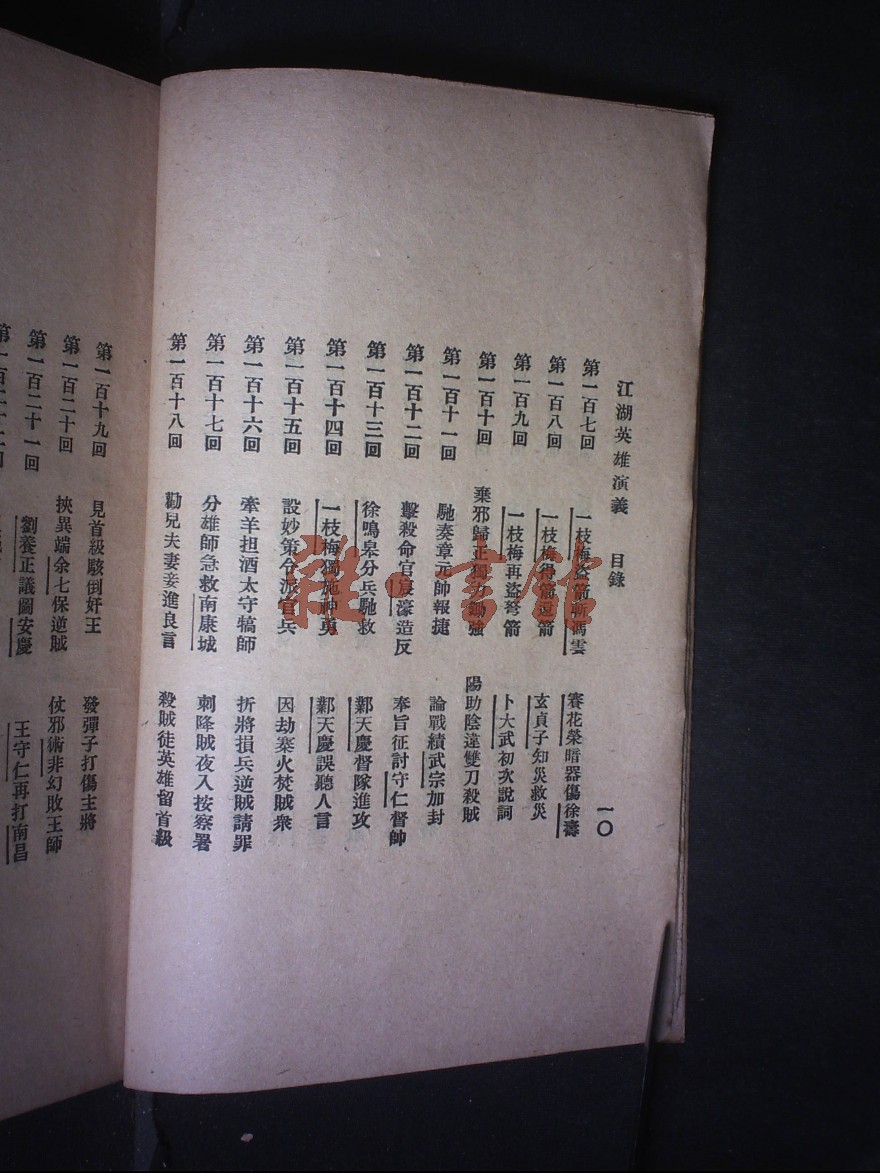 江湖英雄演義 目錄 一〇
第一百七回 一枝梅盜箭斬馮雲 賽花榮暗器傷徐濤
第一百八回 一枝梅得箭還箭 玄貞子知災救災
第一百九回 一枝梅再盜弩箭 卜大武初次說詞
第一百十回 棄邪歸正獨力鋤強 陽助陰違雙刀殺賊
第一百十一回 馳奏章元帥報捷 論戰績武宗加封
第一百十二回 擊殺命官宸濠造反 奉旨征討守仁督帥
第一百十三回 徐鳴皋分兵馳救 鄴天慶督隊進攻
第一百十四回 一枝梅獨施神勇 鄴天慶誤聽人言
第一百十五回 設妙策令派官兵 因劫寨火焚賊衆
第一百十六回 牽羊担酒太守犒師 折將損兵逆賊請罪
第一百十七回 分雄師急救南康城 刺降賊夜入按察署
第一百十八回 勸兒夫妻妾進良言 殺賊徒英雄留首級
第一百十九回 見首級駭倒奸王 發彈子打傷主將
第一百二十回 挾異端余七保逆賊 仗邪術非幻敗王師
第一百二十一回 劉養正議圖安慶 王守仁再打南昌
雜·書館